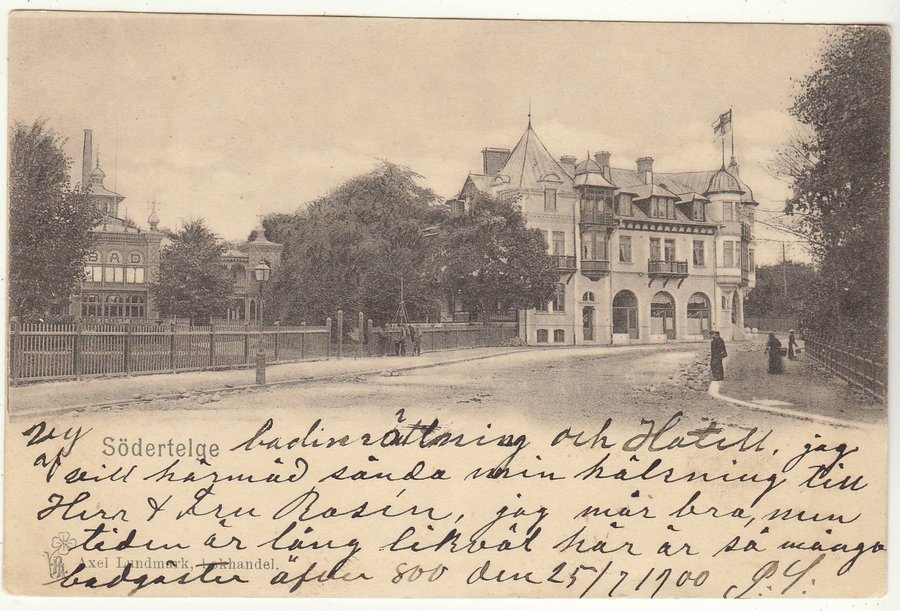 BAD
vy Södertelge badinrättning och Hotell, jag
af vill härmäd sända min hälsning till
Herr & Fru Rosin, jag mår bra, men
tiden är lång likväl här är så många
Axel Lundmark, bokhandel.
badgäster äfver 800 den 25/7 1900 P. S.